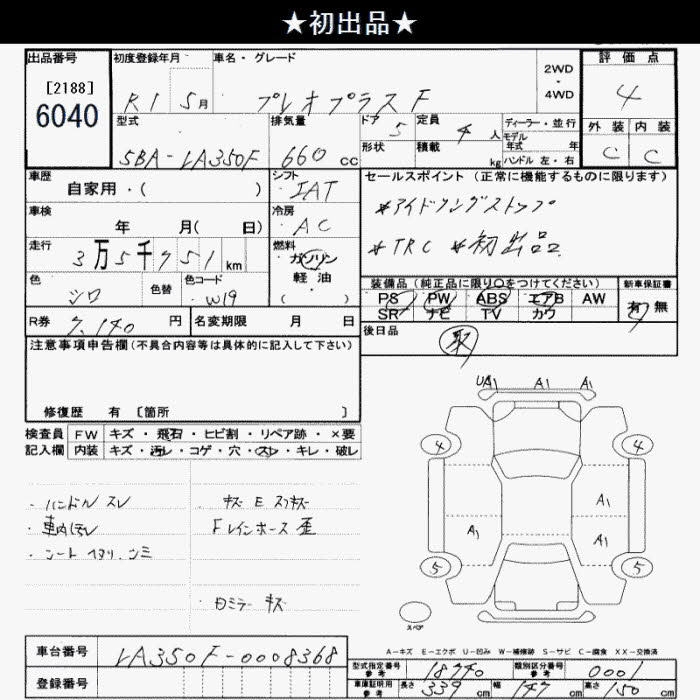 ★初出品★
出品番号
[2188]
6040
初度登録年月
R1 5月
車名・グレード
プレオプラス F
2WD
・
4WD
評価点
4
外装 内装
C C
型式
5BA-LA350F
排気量
660 cc
ドア 5
形状
定員 4 人
積載 kg
ディーラー・並行
モデル
年式 年
ハンドル 左・右
車歴
自家用・( )
シフト
IAT
セールスポイント (正常に機能するものに限ります)
*アイドリングストップ
*TRC *初出品
車検
年 月( 日)
冷房
AC
走行
3万5千751km
燃料
ガソリン
・
軽油
( ・ )
色
シロ
色替
色コード
W19
装備品 (純正品に限り○をつけてください)
PS PW ABS エアB AW
SR ナビ TV カワ
新車保証書
有 無
R券 7,140 円
名変期限 月 日
後日品
取
注意事項申告欄 (不具合内容等は具体的に記入して下さい)
修復歴 有 〔箇所 〕
検査員 FW キズ・飛石・ヒビ割・リペア跡・×要
記入欄 内装 キズ・汚レ・コゲ・穴・スレ・キレ・破レ
・ハンドル スレ
・車内汚レ
・シート ヘタリ、シミ
キズ E スリキズ
Fレインホース 歪
ロミラー キズ
A1 A1
4 4
A1
A1 A1
5 5
スペア
A-キズ E-エクボ U-凹み W-補修跡 S-サビ C-腐食 XX-交換済
車台番号 LA350F-0008368
登録番号
型式指定番号
参考
18740
類別区分番号
参考
0001
車庫証明用
参考
長さ 339 cm 幅 147 cm 高さ 150 cm